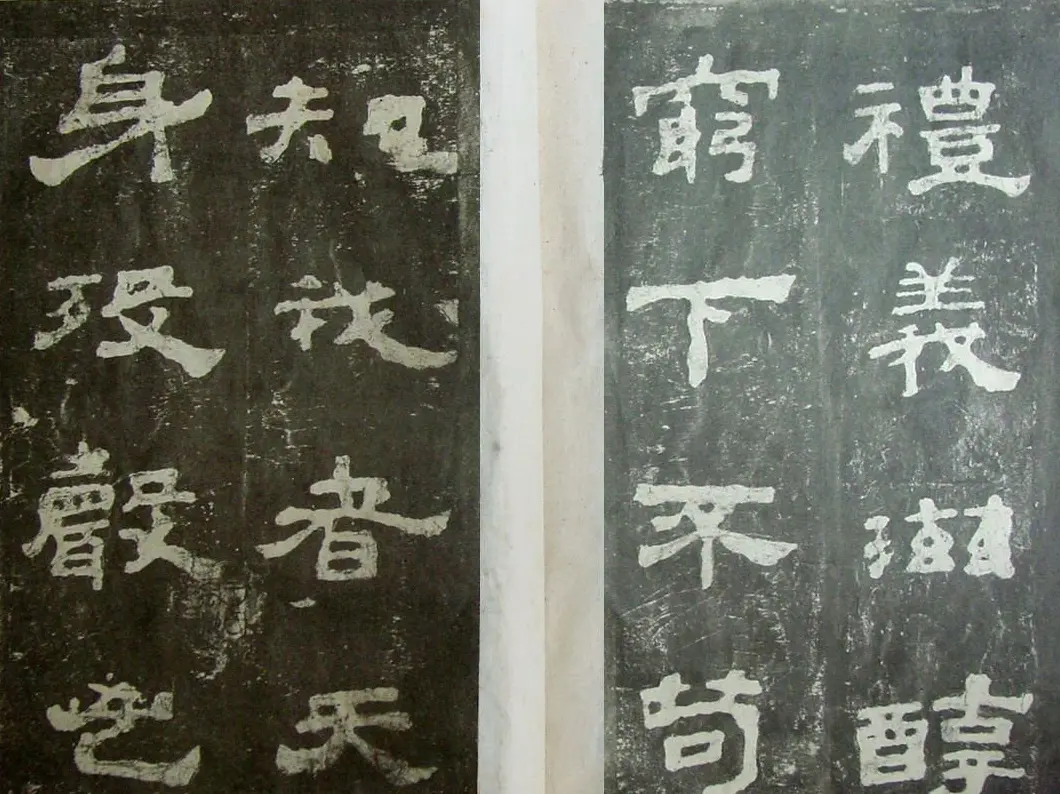 禮義滋醇
窮下不苟
知我者天
身歿聲邕